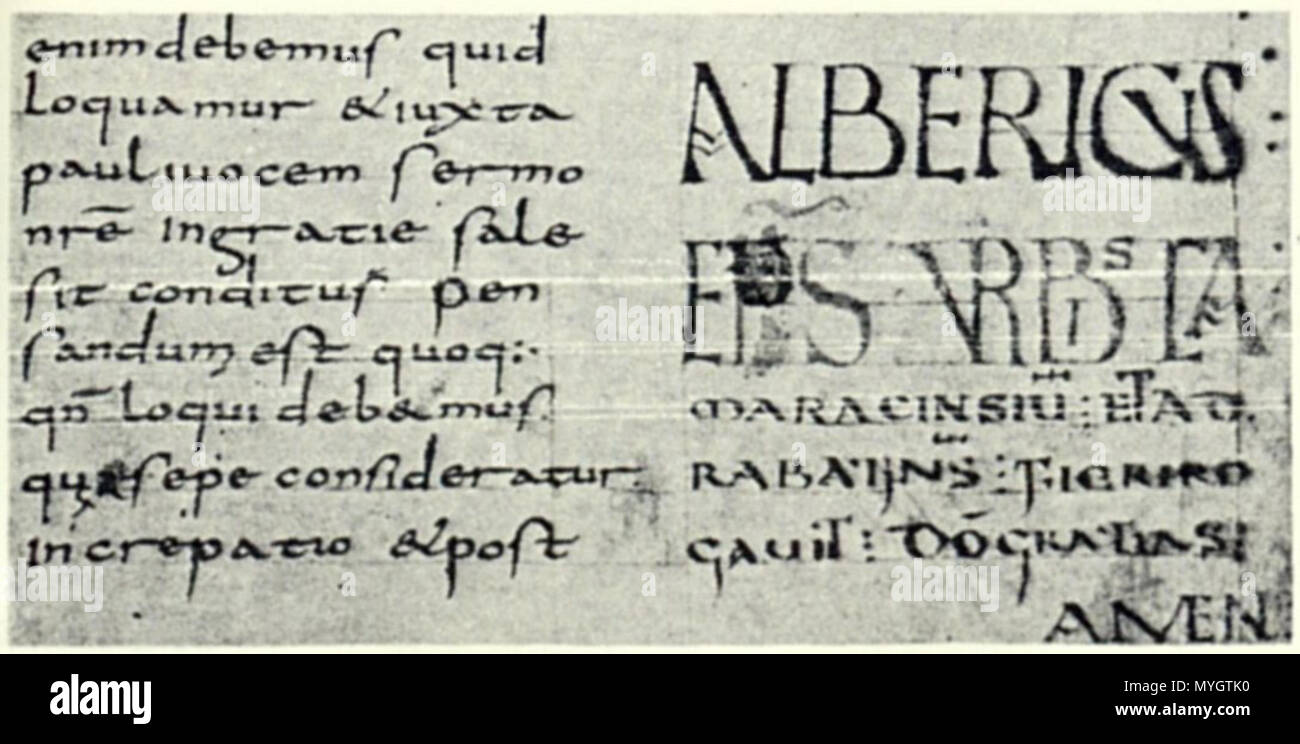 enim debemus quid
loquamur & iuxta
pauli uocem sermo
nrē in gratie sale
sit conditus pen
sandum est quoq:·
qn̄ loqui deb&mus
quia sepe consideratur
increpatio & post
ALBERICUS:
EPS URBˢ TA
MARACINSIŪ: ET AD
RABATIINS: FIERI RO
GAUIT: DŌ GRATIAS:
AMEN
alamy
Image ID: MYGTK0
www.alamy.com